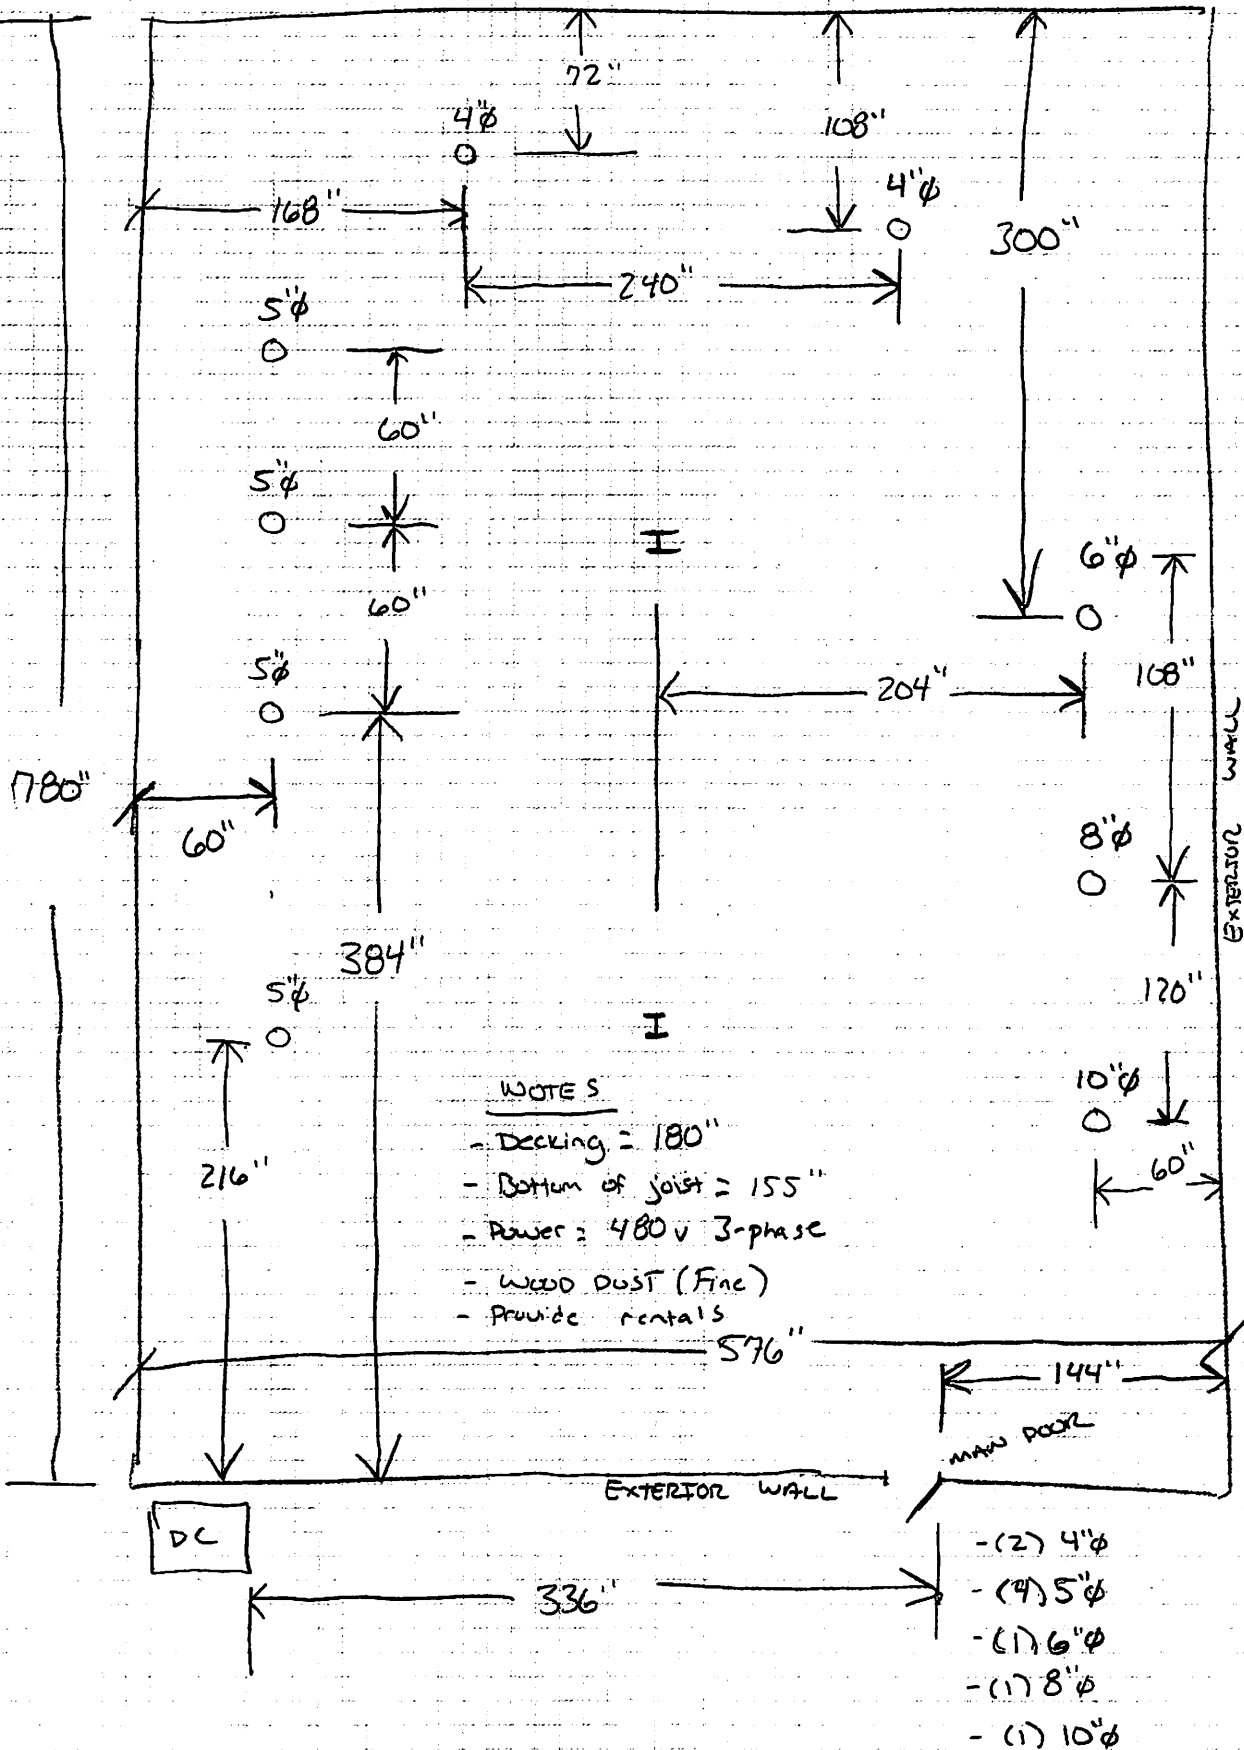 72"
108"
4"ø
4"ø
168"
300"
240"
5"ø
60"
5"ø
6"ø
60"
5"ø
204"
108"
780"
60"
EXTERIOR WALL
8"ø
384"
5"ø
120"
NOTES
10"ø
- Decking = 180"
216"
60"
- Bottom of joist = 155"
- Power = 480 v 3-phase
- WOOD DUST (Fine)
- Provide rentals
576"
144"
MAIN DOOR
EXTERIOR WALL
DC
336"
- (2) 4"ø
- (4) 5"ø
- (1) 6"ø
- (1) 8"ø
- (1) 10"ø